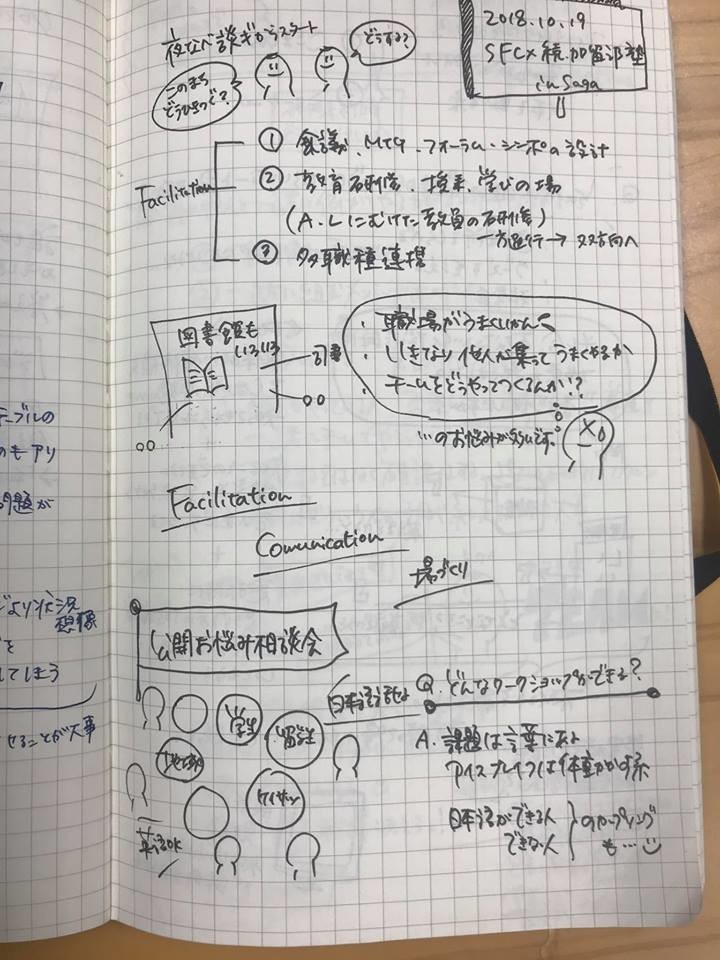 夜なべ談ギからスタート
どうする?
このまち
どうひきつぐ?
2018.10.19
SFC×続・加留部塾
in Saga
Facilitation
① 会議、MTG、フォーラム・シンポの設計
② 教育研修、授業、学びの場
(A.Lにむけた教員の研修)
一方通行→双方向へ
③ 多職種連携
図書館も
いろいろ
司書
○○
○○
・職場がうまくいかん
・いきなり他人が集ってうまくやるか
・チームをどうやってつくるんか!?
…のお悩みが多いです。
Facilitation
Comunication
場づくり
公開お悩み相談会
学生
留学生
日本語話せよ
地域
英語OK
Q. どんなワークショップができる?
A. 課題は言葉によ
アイスブレイクは体動かす系
日本語ができる人
できない人
のカップリング
も…
テーブルの
のもアリ
問題が
より状況
想像
を
してしまう
せることが大事